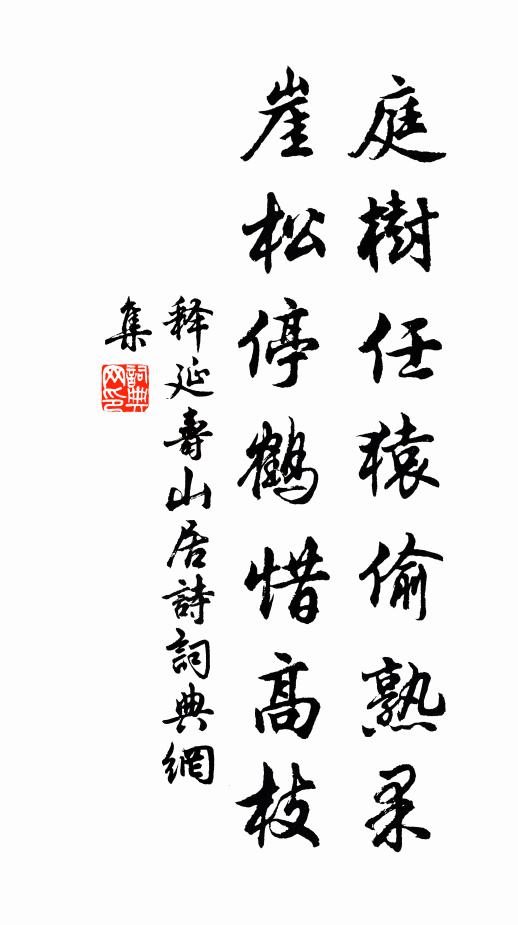 庭樹任猿偷熟果
崖松停鶴惜高枝
释延壽山居詩詞典網
集
詞典網印